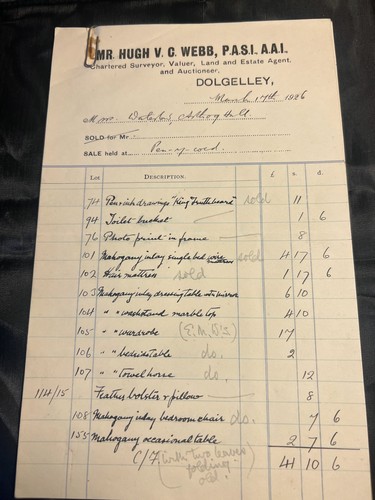 MR. HUGH V. C. WEBB, P.A.S.I. A.A.I.
Chartered Surveyor, Valuer, Land and Estate Agent,
and Auctioneer,
DOLGELLEY,
March 17th 1926
Mrs.
SOLD for Mr.
SALE held at Pen-y-coed.
Lot DESCRIPTION. £ s. d.
74 Pen & ink drawings "King Truthbeare" sold 11
94 Toilet bucket 1 6
76 Photo print in frame 8
101 Mahogany inlay single bed wire mattress sold 4 17 6
102 Hair mattress sold 1 17 6
103 Mahogany inlay dressing table with mirror 6 10
104 " " washstand marble top 4 10
105 " " wardrobe (E.M. ) 17
106 " " bedside table do. 2
107 " " Towel horse do. 12
114/15 Feather bolster & pillow 8
108 Mahogany inlay bedroom chair do. 7 6
155 Mahogany occasional table 2 7 6
C/F (with two leaves 41 10 6
folding
old)